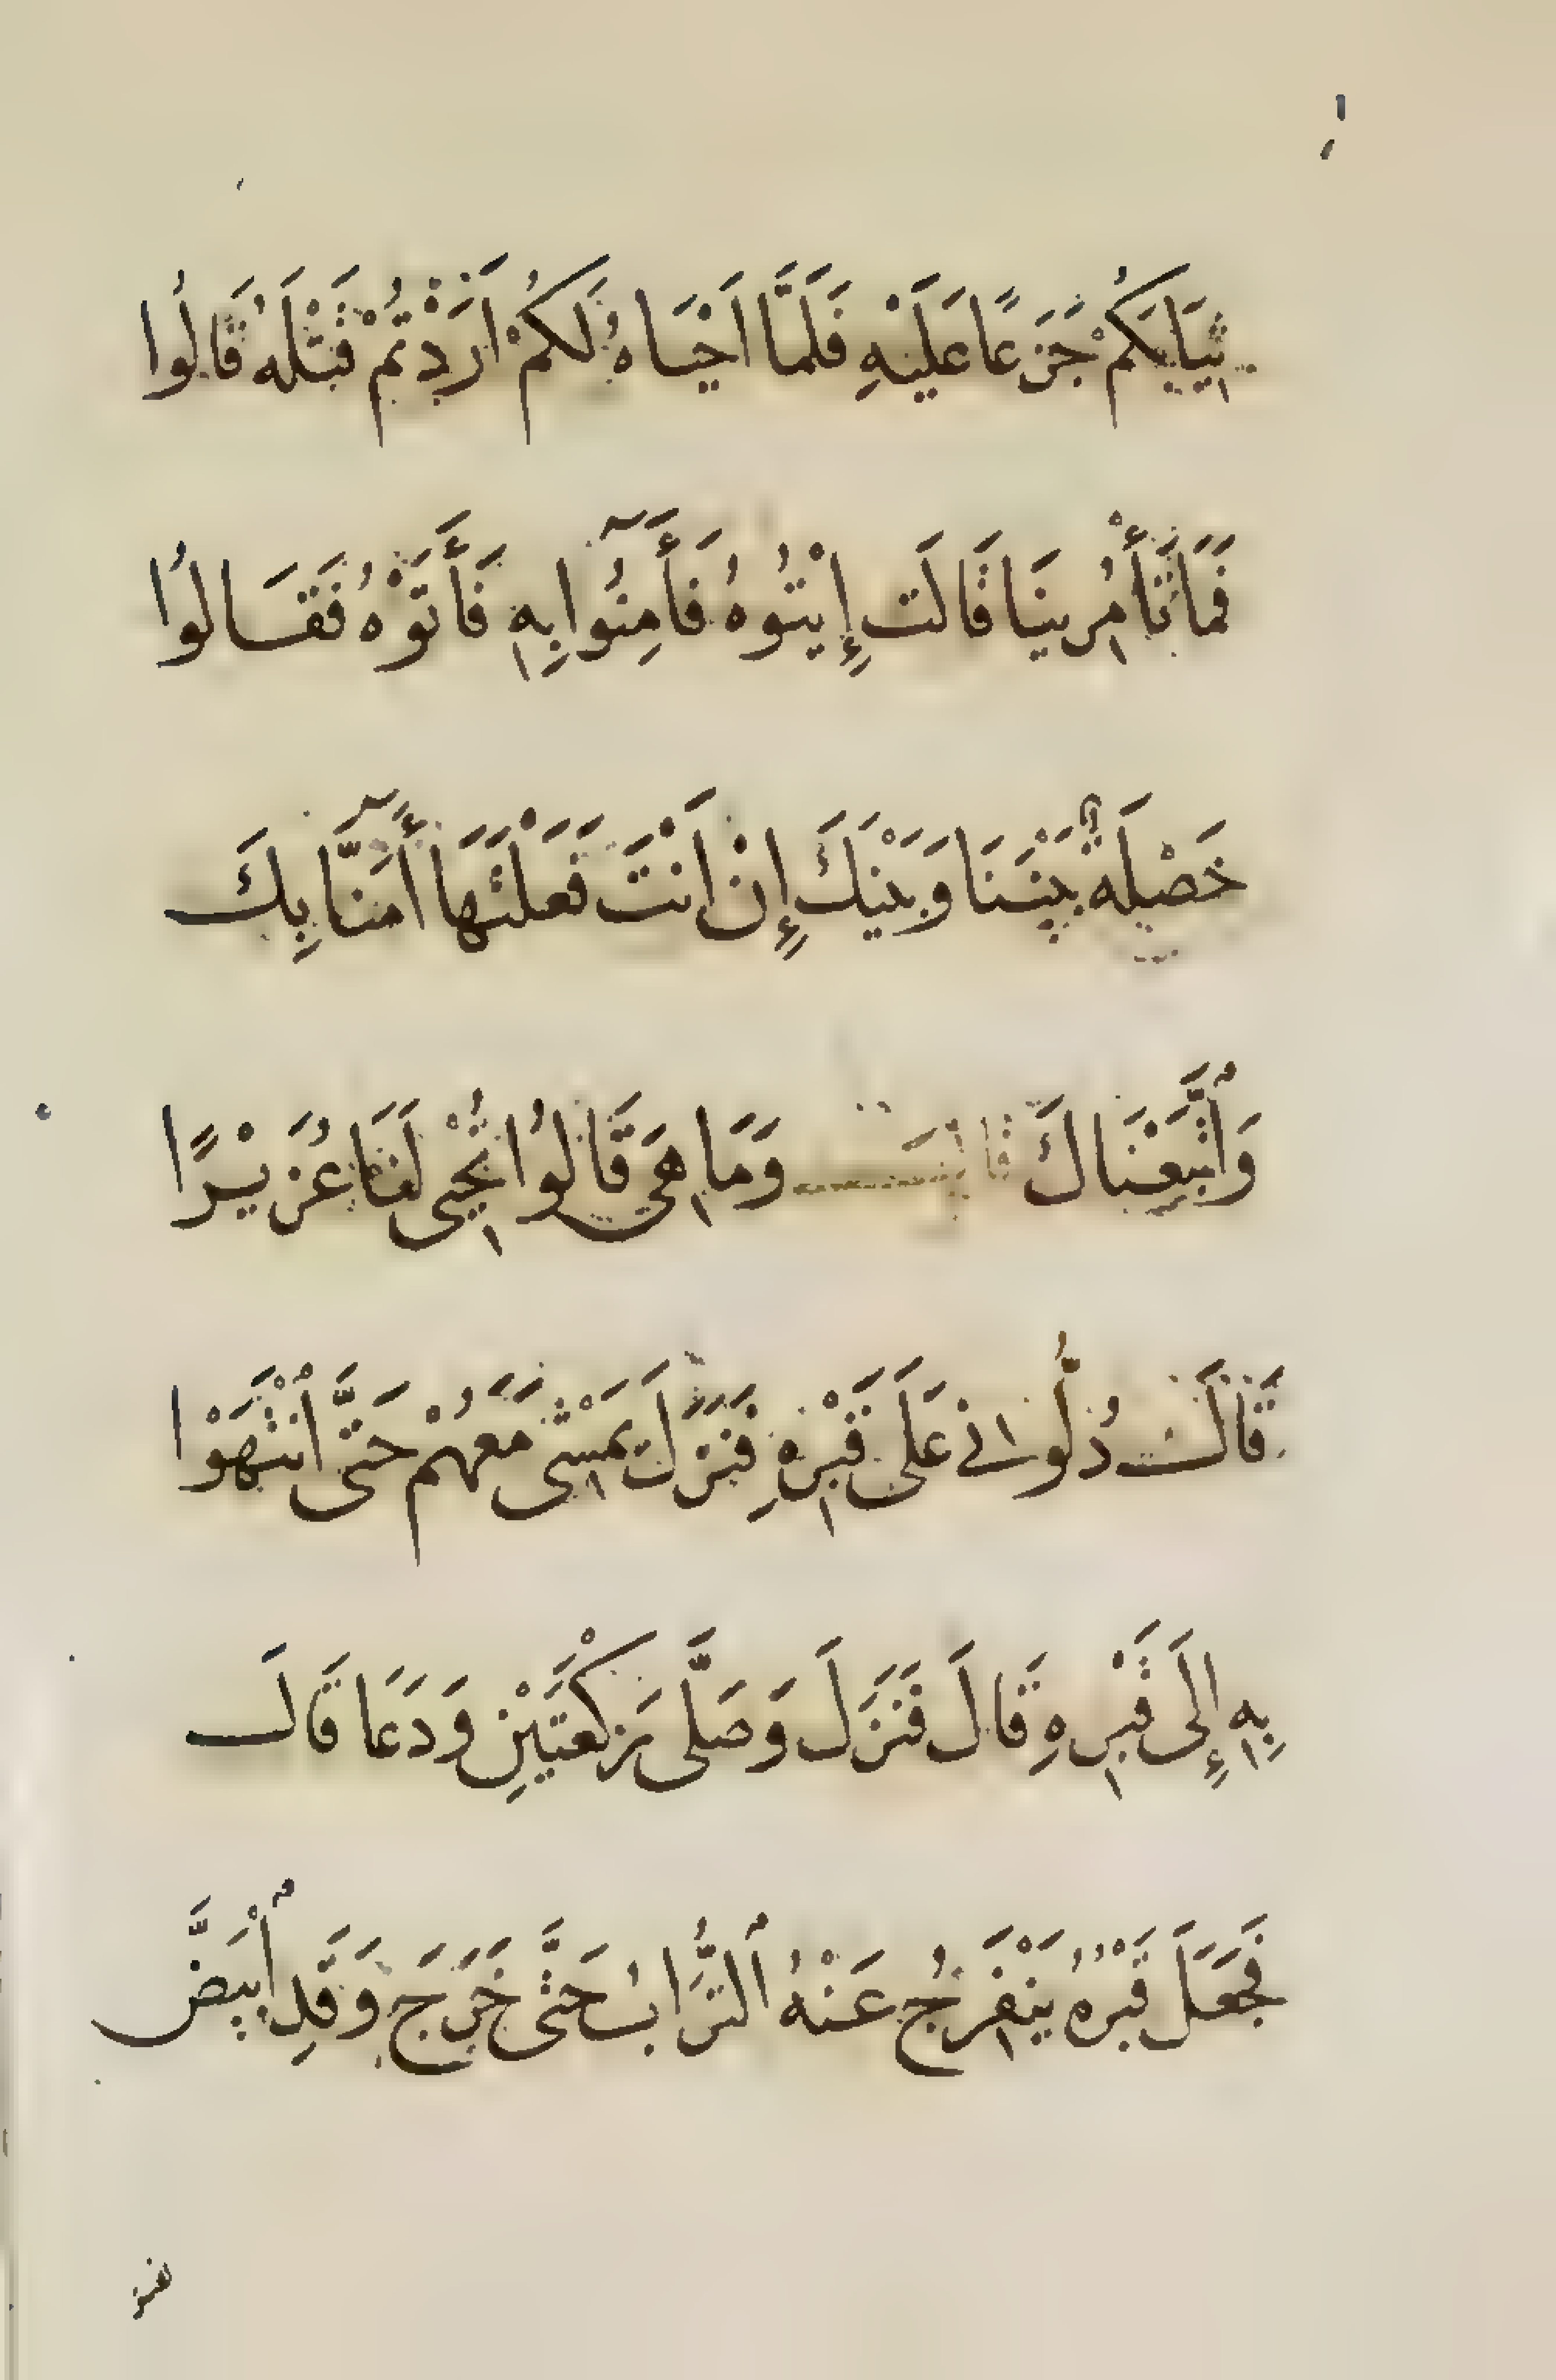 ثِيَابَكُمْ جَزَعًا عَلَيْهِ فَلَمَّا اَحْيَاهُ لَكُمْ اَرَدْتُمْ قَتْلَهُ قَالُوا
فَمَا تَأْمُرِينَا قَالَت إِيْتُوهُ فَأَمِنُوا بِهِ فَأَتَوْهُ فَقَالُوا
خَصْلَةٌ بَيْنَنَا وَبَيْنَكَ إِنْ اَنْتَ فَعَلْتَهَا أَمَنَّا بِكَ
وَاتَّبَعْنَاكَ قَالَ وَمَا هِيَ قَالُوا تُحْيِى لَنَا عُزَيْرًا
قَالَ دُلُّونِى عَلَى قَبْرِهِ فَنَزَلَ يَمْشِى مَعَهُمْ حَتَّى انْتَهَوْا
بِهِ إِلَى قَبْرِهِ قَالَ فَنَزَلَ وَصَلَّى رَكْعَتَيْنِ وَدَعَا قَالَ
فَجَعَلَ قَبْرُهُ يَنْفَرِجُ عَنْهُ التُّرَابُ حَتَّى خَرَجَ وَقَدِ ابْيَضَّ